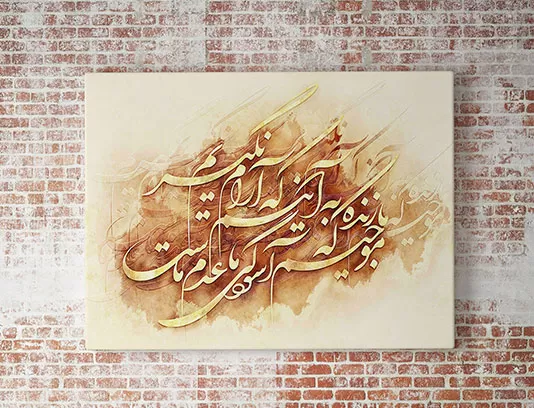 ما زنده به آنیم که آرام نگیریم
موجیم که آسودگی ما عدم ماست